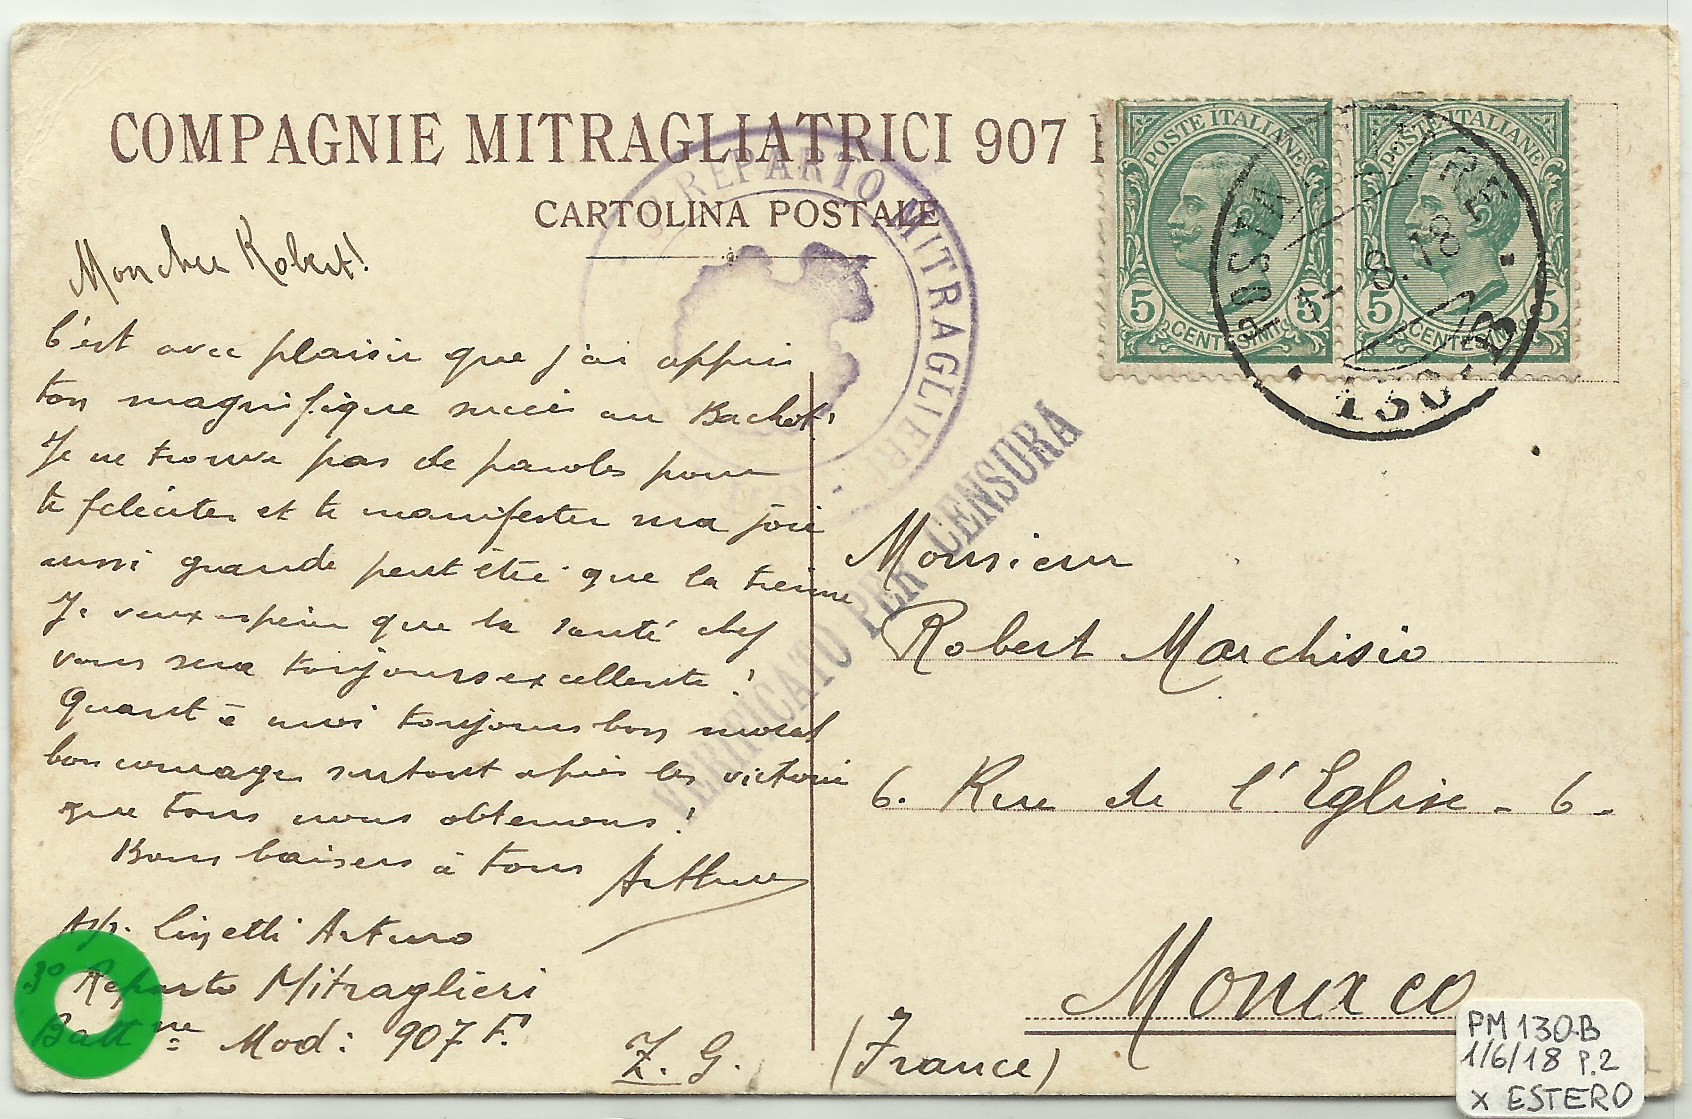 COMPAGNIE MITRAGLIATRICI 907
CARTOLINA POSTALE
REPARTO MITRAGLIERI
POSTE ITALIANE
5 CENTESIMI 5
POSTE ITALIANE
5 CENTESIMI 5
POSTA
8.18
130-B
VERIFICATO PER CENSURA
Mon cher Robert!
C'est avec plaisir que j'ai appris
ton magnifique succès au Bachot!
Je ne trouve pas de paroles pour
te féliciter et te manifester ma joie
aussi grande peut être que la tienne
Je veux espérer que la santé chez
vous sera toujours excellente!
Quant à moi toujours bon moral
bon courage surtout après les victoire
que tous nous obtenons!
Bons baisers à tous Arthur
Linetti Arturo
3º Reparto Mitraglieri
Batt.ne Mod: 907 F.
Z. G.
Monsieur
Robert Marchisio
6. Rue de l'Eglise - 6.
Monaco
(France)
PM 130-B
1/6/18 P.2
X ESTERO